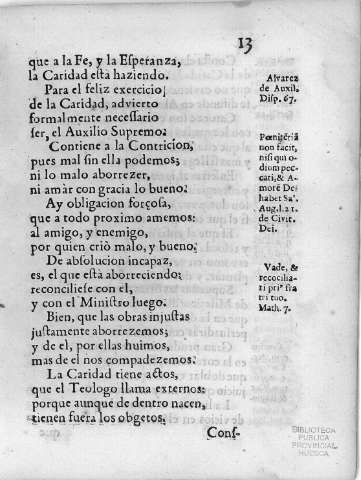 13
que a la Fe, y la Esperanza,
la Caridad esta haziendo.
Para el feliz exercicio;
de la Caridad, advierto
formalmente necessario
ser, el Auxilio Supremo.
Contiene a la Contricion,
pues mal sin ella podemos;
ni lo malo aborrezer,
ni amàr con gracia lo bueno.
Ay obligacion forçosa,
que a todo proximo amemos:
al amigo, y enemigo,
por quien criò malo, y bueno.
De absolucion incapaz,
es, el que està aborreciendo;
reconciliese con el,
y con el Ministro luego.
Bien, que las obras injustas
justamente aborrezemos;
y de el, por ellas huimos,
mas de el nos compadezemos.
La Caridad tiene actos,
que el Teologo llama externos:
porque aunque de dentro nacen,
tienen fuera los obgetos.
Cons-
Alvarez
de Auxil.
Disp. 67.
Pœnitẽtiã
non facit,
nisi qui o-
dium pec-
cati, & A-
morẽ Dei
habet Sã.
Aug. l. 21.
de Civit.
Dei.
Vade, &
recocilia-
ri priº fra
tri tuo.
Math. 7.
BIBLIOTECA
PUBLICA
PROVINCIAL
HUESCA